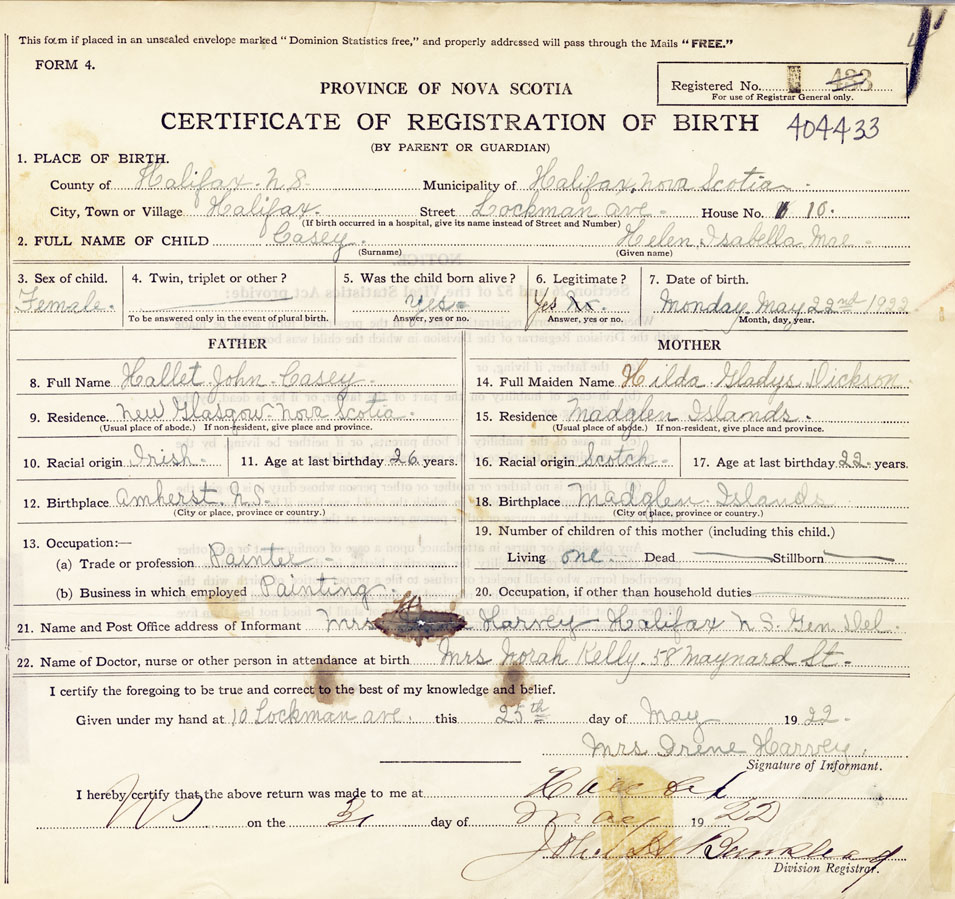 This form if placed in an unsealed envelope marked "Dominion Statistics free," and properly addressed will pass through the Mails "FREE."
FORM 4.
Registered No. 433
For use of Registrar General only.
PROVINCE OF NOVA SCOTIA
CERTIFICATE OF REGISTRATION OF BIRTH 404433
(BY PARENT OR GUARDIAN)
1. PLACE OF BIRTH.
County of Halifax. N.S. Municipality of Halifax, Nova Scotia
City, Town or Village Halifax. Street Lockman ave. House No. 10.
(If birth occurred in a hospital, give its name instead of Street and Number)
2. FULL NAME OF CHILD Casey. Helen Isabella Mae
(Surname) (Given name)
3. Sex of child. 4. Twin, triplet or other? 5. Was the child born alive? 6. Legitimate? 7. Date of birth.
Female. Yes Yes Monday, May 22nd 1922
To be answered only in the event of plural birth. Answer, yes or no. Answer, yes or no. Month, day, year.
FATHER MOTHER
8. Full Name Hallet John Casey. 14. Full Maiden Name Hilda Gladys Dickson
9. Residence. New Glasgow Nova Scotia. 15. Residence Madglen Islands.
(Usual place of abode.) If non-resident, give place and province. (Usual place of abode.) If non-resident, give place and province.
10. Racial origin Irish. 11. Age at last birthday 26 years. 16. Racial origin Scotch. 17. Age at last birthday 22. years.
12. Birthplace Amherst. N.S. 18. Birthplace Madglen Islands
(City or place, province or country.) (City or place, province or country.)
13. Occupation:— 19. Number of children of this mother (including this child.)
(a) Trade or profession Painter Living one. Dead Stillborn
(b) Business in which employed Painting. 20. Occupation, if other than household duties
21. Name and Post Office address of Informant Mrs Harvey Halifax N.S. Gen. Del.
22. Name of Doctor, nurse or other person in attendance at birth Mrs Norah Kelly. 58 Maynard St.
I certify the foregoing to be true and correct to the best of my knowledge and belief.
Given under my hand at 10 Lockman ave. this 25th day of May 1922.
Mrs Irene Harvey.
Signature of Informant.
I hereby certify that the above return was made to me at
on the 31 day of May 1922
John
Division Registrar.